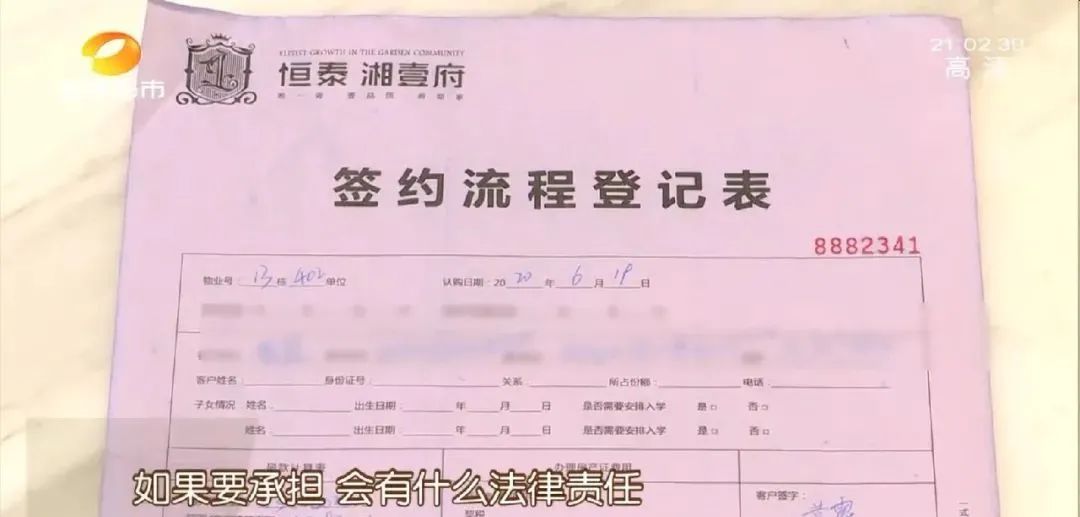 21:02:30
高清
ELITIST GROWTH IN THE GARDEN COMMUNITY
恒泰 湘壹府
签约流程登记表
8882341
物业号:13栋402单位 认购日期:2020年6月19日
客户姓名: 身份证号: 关系: 所占份额: 电话:
子女情况 姓名: 出生日期: 年 月 日 是否需要安排入学 是□ 否□
姓名: 出生日期: 年 月 日 是否需要安排入学 是□ 否□
办理房产证费用
客户签字:
契税
一式
如果要承担 会有什么法律责任